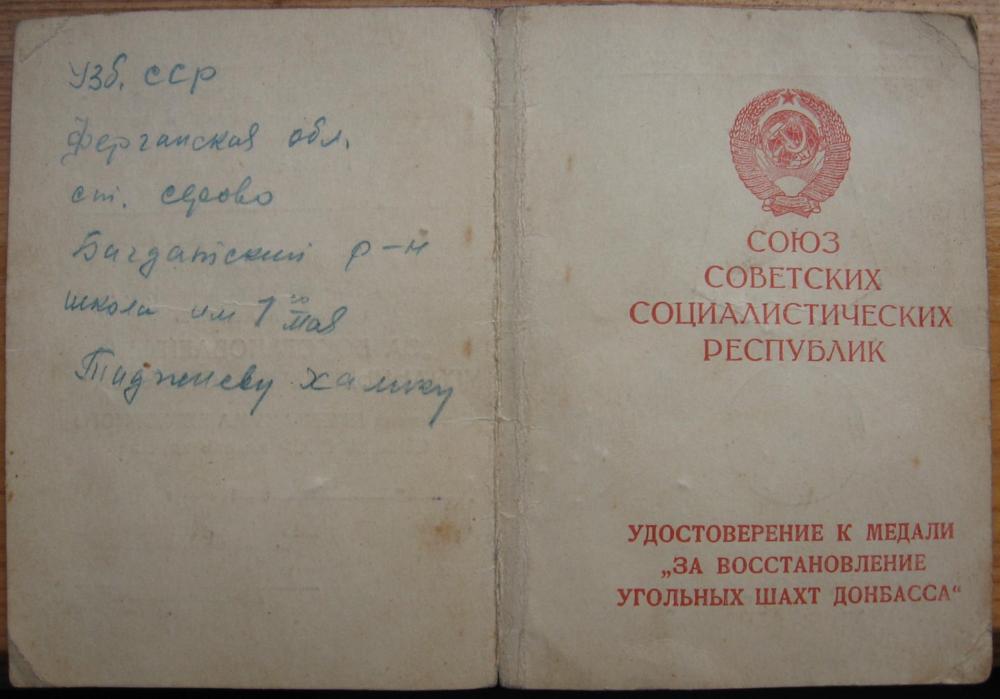 Узб. ССР
Ферганская обл.
ст. серово
Багдатский р-н
школа им 1го мая
Таджиеву Халику
СОЮЗ
СОВЕТСКИХ
СОЦИАЛИСТИЧЕСКИХ
РЕСПУБЛИК
УДОСТОВЕРЕНИЕ К МЕДАЛИ
„ЗА ВОССТАНОВЛЕНИЕ
УГОЛЬНЫХ ШАХТ ДОНБАССА“